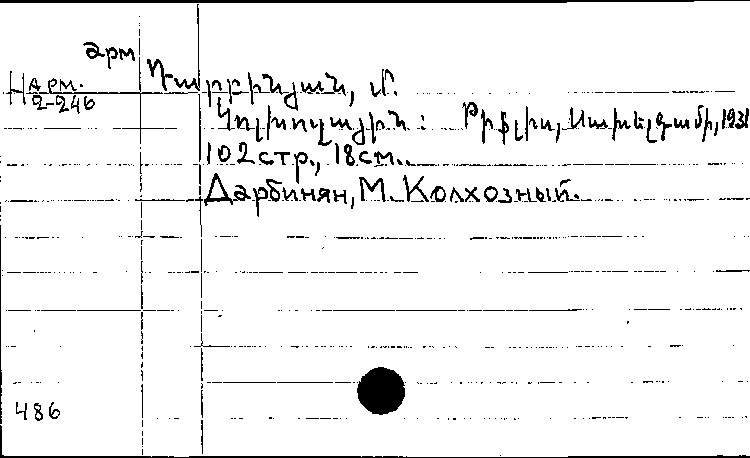 арм
Дарբինյան, Մ.
Н АРМ.
2-246
Կոլխոզային: Թիֆլիս, 1931
102 стр., 18 см..
Дарбинян, М. Колхозный.
486